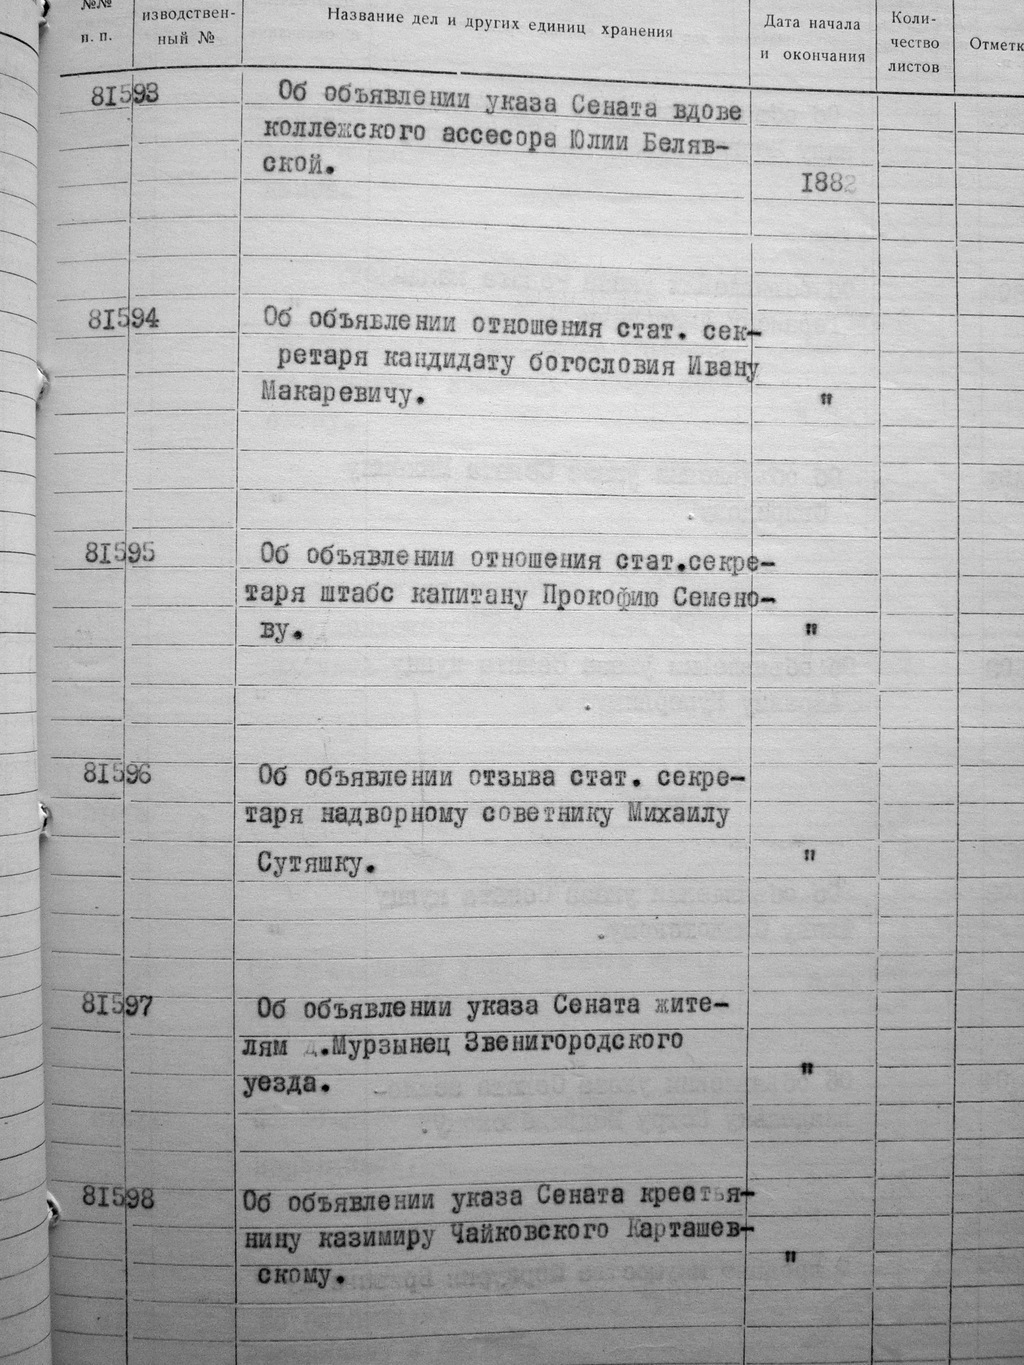 №№
п. п.
изводствен-
ный №
Название дел и других единиц хранения
Дата начала
и окончания
Коли-
чество
листов
Отметк
81593
Об объявлении указа Сената вдове
коллежского ассесора Юлии Беляв-
ской.
1882
81594
Об объявлении отношения стат. сек-
ретаря кандидату богословия Ивану
Макаревичу.
"
81595
Об объявлении отношения стат.секре-
таря штабс капитану Прокофию Семено-
ву.
"
81596
Об объявлении отзыва стат. секре-
таря надворному советнику Михаилу
Сутяшку.
"
81597
Об объявлении указа Сената жите-
лям д.Мурзынец Звенигородского
уезда.
"
81598
Об объявлении указа Сената крестья-
нину казимиру Чайковского Карташев-
скому.
"